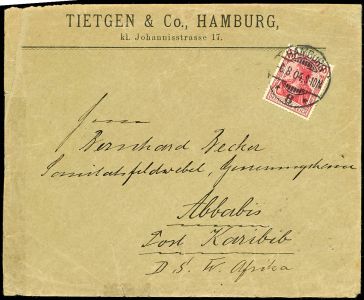 TIETGEN & Co., HAMBURG,
kl. Johannisstrasse 17.
HAMBURG
8 04
Herrn
Bernhard Becker
Sanitätsfeldwebel, Genesungsheim
Abbabis
Post Karibib
D. S. W. Afrika